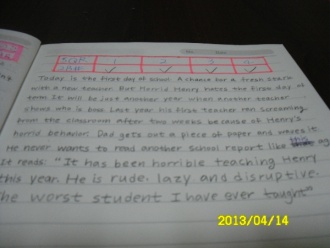 1 2 3 4
Today is the first day of school. A chance for a fresh start
with a new teacher. But Horrid Henry hates the first day of
term. It will be just another year. When another teacher
shows who is boss. Last year his first teacher ran screaming
from the classroom after two weeks because of Henry's
horrid behavior. Dad gets out a piece of paper and waves it.
He never wants to read another school report like
It reads: "It has been horrible teaching Henry
this year. He is rude, lazy and disruptive.
The worst student I have ever taught"
2013/04/14